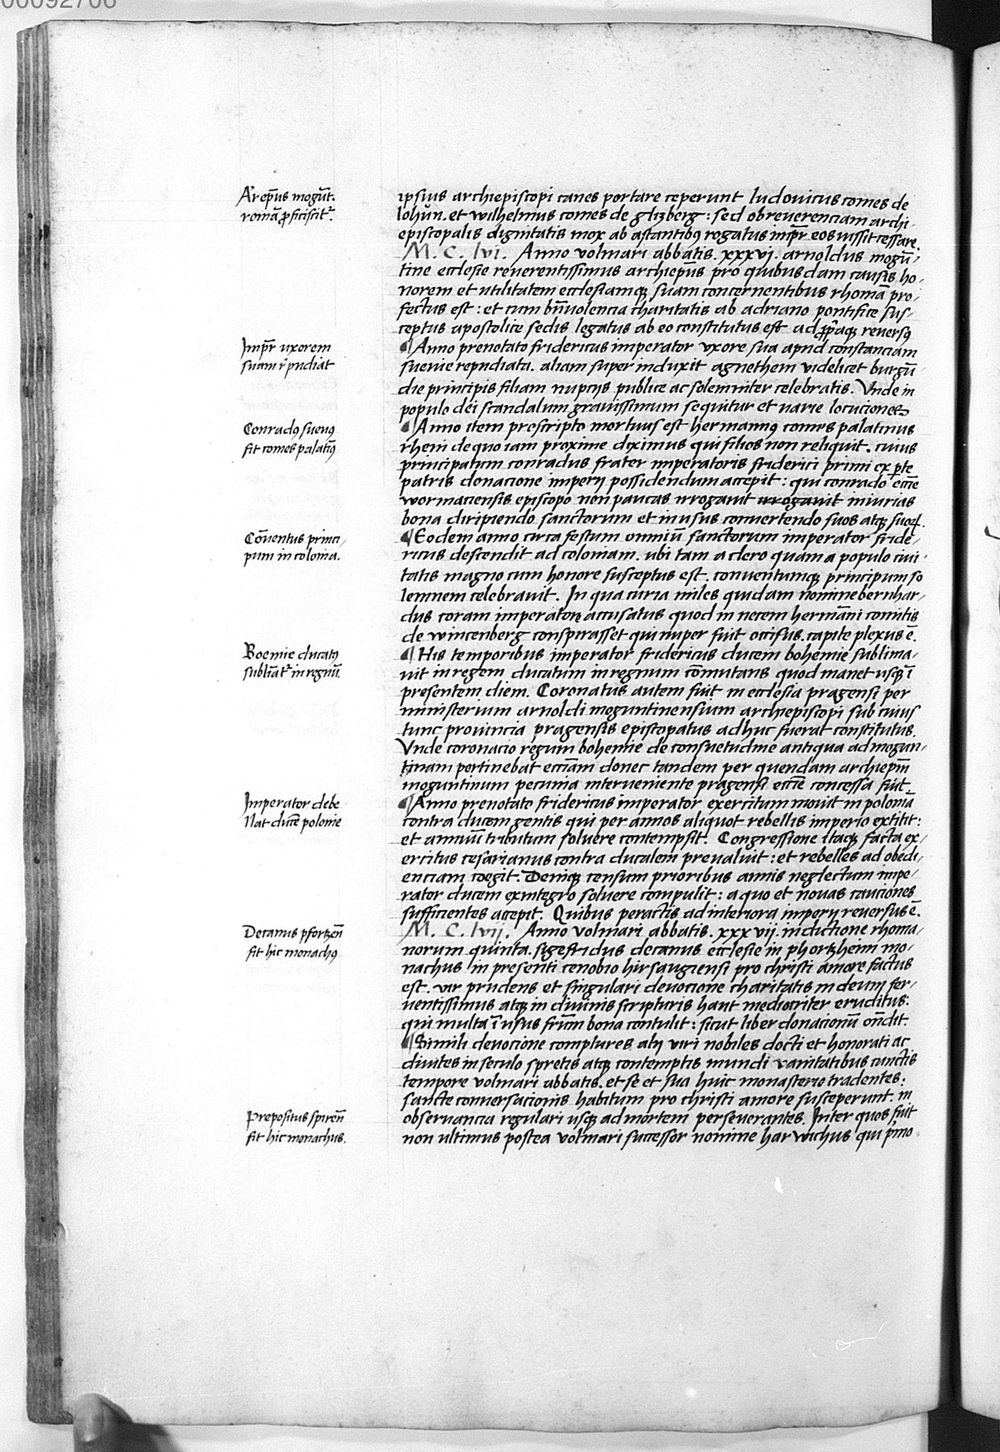 00092706
Arepūs mogūt.
romā ꝓficiscit᷑.
ipsius archiepiscopi canes portare ceperunt ludovicus comes de
lohūn. et wilhelmus comes de glizberg: sed ob reverenciam archi-
episcopalis dignitatis mox ab astantibꝯ rogatus imꝑr eos iussit cessare.
M. C. lvi. Anno volmari abbatis. xxxvi. arnoldus mogū-
tine ecclesie reverentissimus archiepūs pro quibusdam causis ho-
norem et utilitatem ecclesiamqꝫ suam concernentibus rhomā pro-
fectus est: et cum bn̄ivolencia charitatis ab adriano pontifice sus-
ceptus apostolice sedis legatus ab eo constitutus est ad reversꝯ
Imꝑr uxorem
suam rēpudiat
¶ Anno prenotato fridericus imperator uxore sua apud constanciam
suevie repudiata. aliam super induxit agnethem videlicet burgū-
die principis filiam nupcijs publice ac solemniter celebratis. Unde in
populo dei scandalum gravissimum sequitur et varie locuciones
Conradꝯ suevꝯ
fit comes palatiꝯ
¶ Anno item prescripto mortuus est hermannꝯ comes palatinus
rheni de quo iam proxime diximus qui filios non reliquit. cuius
principatum conradus frater imperatoris friderici primi ex ꝑte
patris donacione imperij possidendum accepit: qui conrado eccīe
wormaciensis episcopo non paucas irrogavit irrogavit iniurias
bona diripiendo sanctorum et in usus convertendo suos atqꝫ
Cōventus princi-
pum in colonia.
¶ Eodem anno circa festum omniū sanctorum imperator fride-
ricus descendit ad coloniam. ubi tam a clero quam a populo civi-
tatis magno cum honore susceptus est. conventumqꝫ principum so
lemnem celebravit. In qua curia miles quidam nomine bernhar-
dus coram imperatore accusatus quod in necem hermāni comitis
de wincenberg conspirasset qui nuper fuit occisus. capite plexus ē.
Boemie ducatꝯ
sublīat᷑ in regnū.
¶ His temporibus imperator fridericus ducem bohemie sublima-
vit in regem. ducatum in regnum cōmutans quod manet usqꝫ ī
presentem diem. Coronatus autem fuit in ecclesia pragensi per
ministerium arnoldi moguntinensium archiepiscopi sub cuius
tunc provincia pragensis episcopatus adhuc fuerat constitutus.
Unde coronacio regum bohemie de consuetudine antiqua ad mogun-
tinam pertinebat ecciam donec tandem per quendam archiepm̄
moguntinum pecunia interveniente pragensi eccīe concessa fuit.
Imperator debe
llat ducē polonie
¶ Anno prenotato fridericus imperator exercitum movit in poloniā
contra ducem gentis qui per annos aliquot rebellis imperio extitit:
et annuū tributum solvere contempsit. Congressione itaqꝫ facta ex-
ercitus cesarianus contra ducalem prevaluit: et rebelles ad obedi-
enciam coegit. Deniqꝫ censum prioribus annis neglectum impe-
rator ducem ex integro solvere compulit: a quo et novas cauciones
sufficientes accepit. Quibus peractis ad interiora imperij reversus ē.
Decanus pfortzēn
fit hic monachꝯ
M. C. lvii. Anno volmari abbatis. xxxvii. indictione rhoma-
norum quinta. sigefridus decanus ecclesie in phortzheim mo-
nachus in presenti cenobio hirsaugiensi pro christi amore factus
est. vir prudens et singulari devocione charitatis in deum fer-
ventissimus atqꝫ in divinis scripturis haut mediocriter eruditus:
qui multa ī usus frm̄ bona contulit: sicut liber donacionū on̄dit.
¶ Simili devocione complures alij viri nobiles docti et honorati ac
divites in seculo spretis atqꝫ contemptis mundi vanitatibus cunctis
tempore volmari abbatis. et se et sua huic monasterio tradentes:
sancte conversacionis habitum pro christi amore susceperunt. in
Prepositus spirēn
fit hic monachus.
observancia regulari usqꝫ ad mortem perseverantes. Inter quos fuit
non ultimus postea volmari successor nomine harwichus qui pīmo